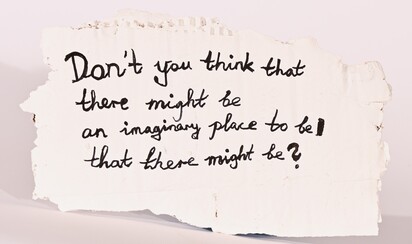 Don't you think that
there might be
an imaginary place to be
that there might be?